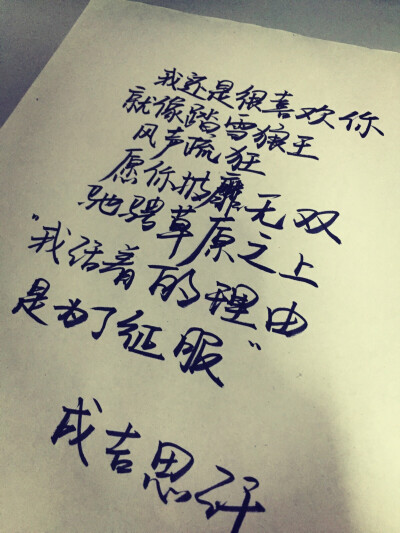 我还是很喜欢你
就像踏雪狼王
风声疏狂
愿你披靡无双
驰骋草原之上
“我活着的理由
是为了征服”
成吉思汗